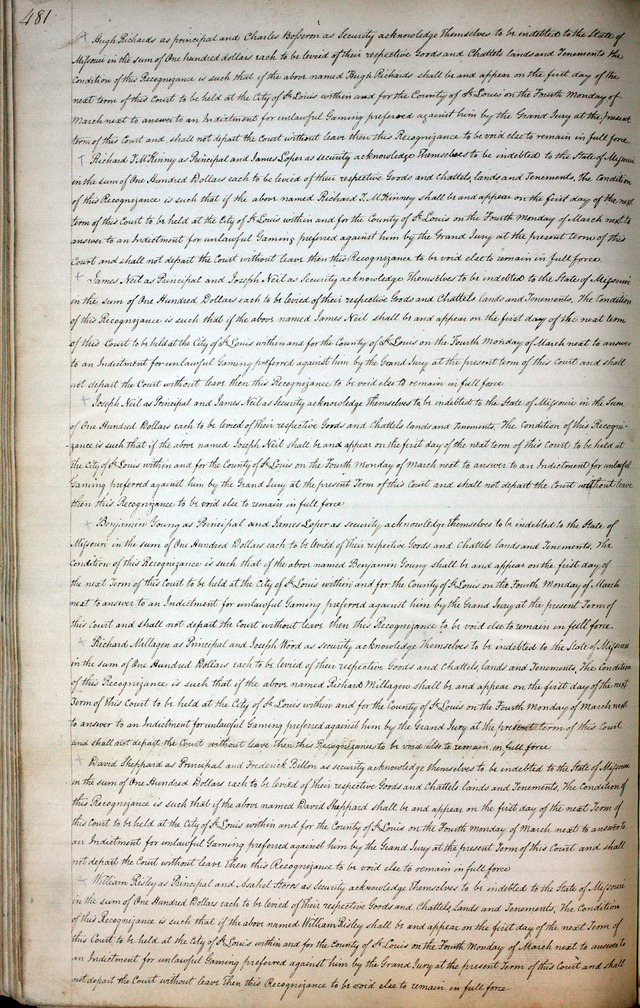 481
Hugh Richards as principal and Charles Bosseron as Security acknowledge Themselves to be indebted to the State of
Missouri in the sum of One hundred dollars each to be levied of their respective Goods and Chattels lands and Tenements the
Condition of this Recognizance is such that if the above named Hugh Richards shall be and appear on the first day of the
next term of this Court to be held at the City of St Louis within and for the County of St Louis on the Fourth Monday of
March next to answer to an Indictment for unlawful Gaming preferred against him by the Grand Jury at the present
term of this Court and shall not depart the Court without leave then this Recognizance to be void else to remain in full force
Richard T. McKinny as Principal and James Loper as security acknowledge Themselves to be indebted to the State of Missouri
in the sum of One Hundred Dollars each to be levied of their respective Goods and Chattels, lands and Tenements, The Condition
of this Recognizance is such that if the above named Richard T. McKinney shall be and appear on the first day of the next
term of this Court to be held at the City of St Louis within and for the County of St Louis on the Fourth Monday of March next to
answer to an Indictment for unlawful Gaming preferred against him by the Grand Jury at the present term of this
Court and shall not depart the Court without leave then this Recognizance to be void else to remain in full force
James Neil as Principal and Joseph Neil as Security acknowledge Themselves to be indebted to the State of Missouri
in the sum of One Hundred Dollars each to be levied of their respective Goods and Chattels lands and Tenements, The Condition
of this Recognizance is such that if the above named James Neil shall be and appear on the first day of the next term
of this Court to be held at the City of St Louis within and for the County of St Louis on the Fourth Monday of March next to answer
to an Indictment for unlawful Gaming preferred against him by the Grand Jury at the present term of this court and shall
not depart the Court without leave then this Recognizance to be void else to remain in full force
Joseph Neil as Principal and James Neil as security acknowledge Themselves to be indebted to the State of Missouri in the Sum
of One Hundred Dollars each to be levied of their respective Goods and Chattels lands and Tenements The Condition of this Recogni-
-zance is such that if the above named Joseph Neil shall be and appear on the first day of the next term of this Court to be held at
the City of St Louis within and for the County of St Louis on the Fourth Monday of march next to answer to an Indictment for unlawful
Gaming preferred against him by the Grand Jury at the present Term of this Court and shall not depart the Court without leave
then this Recognizance to be void else to remain in full force
Benjamin Young as Principal and James Loper as security acknowledge Themselves to be indebted to the State of
Missouri in the sum of One Hundred Dollars each to be levied of their respective Goods and Chattels lands and Tenements, The
Condition of this Recognizance is such that if the above named Benjamin Young shall be and appear on the first day of
the next Term of this Court to be held at the City of St Louis within and for the County of St Louis on the Fourth Monday of March
next to answer to an Indictment for unlawful Gaming preferred against him by the Grand Jury at the present Term of
this Court and shall not depart the Court without leave then this Recognizance to be void else to remain in full force.
Richard Millagen as Principal and Joseph Wood as security acknowledge Themselves to be indebted to the State of Missouri
in the sum of One Hundred Dollars each to be levied of their respective Goods and Chattels, lands and Tenements, The Condition
of this Recognizance is such that if the above named Richard Millagen shall be and appear on the first day of the next
Term of this Court to be held at the City of St Louis within and for the County of St Louis on the Fourth Monday of March next
to answer to an Indictment for unlawful Gaming preferred against him by the Grand Jury at the present term of this Court
and shall not depart the Court without leave then this Recognizance to be void else to remain in full force
David Sheppard as Principal and Frederick Billon as security acknowledge themselves to be indebted to the State of Missouri
in the sum of One Hundred Dollars each to be levied of their respective Goods and Chattels, lands and Tenements, The Condition of
this Recognizance is such that if the above named David Sheppard shall be and appear on the first day of the next Term of
this Court to be held at the City of St Louis within and for the County of St Louis on the Fourth Monday of March next to answer to
an Indictment for unlawful Gaming preferred against him by the Grand Jury at the present Term of this Court and shall
not depart the Court without leave Then this Recognizance to be void else to remain in full force
William Risley as Principal and Asahel Hoors as Security acknowledge Themselves to be indebted to the State of Missouri
in the sum of One Hundred Dollars each to be levied of their respective Goods and Chattels, lands and Tenements, The Condition
of this Recognizance is such that if the above named William Risley shall be and appear on the first day of the next Term of
this Court to be held at the City of St Louis within and for the County of St Louis on the Fourth Monday of March next to answer to
an Indictment for unlawful Gaming preferred against him by the Grand Jury at the present Term of this Court and shall
not depart the Court without leave Then this Recognizance to be void else to remain in full force